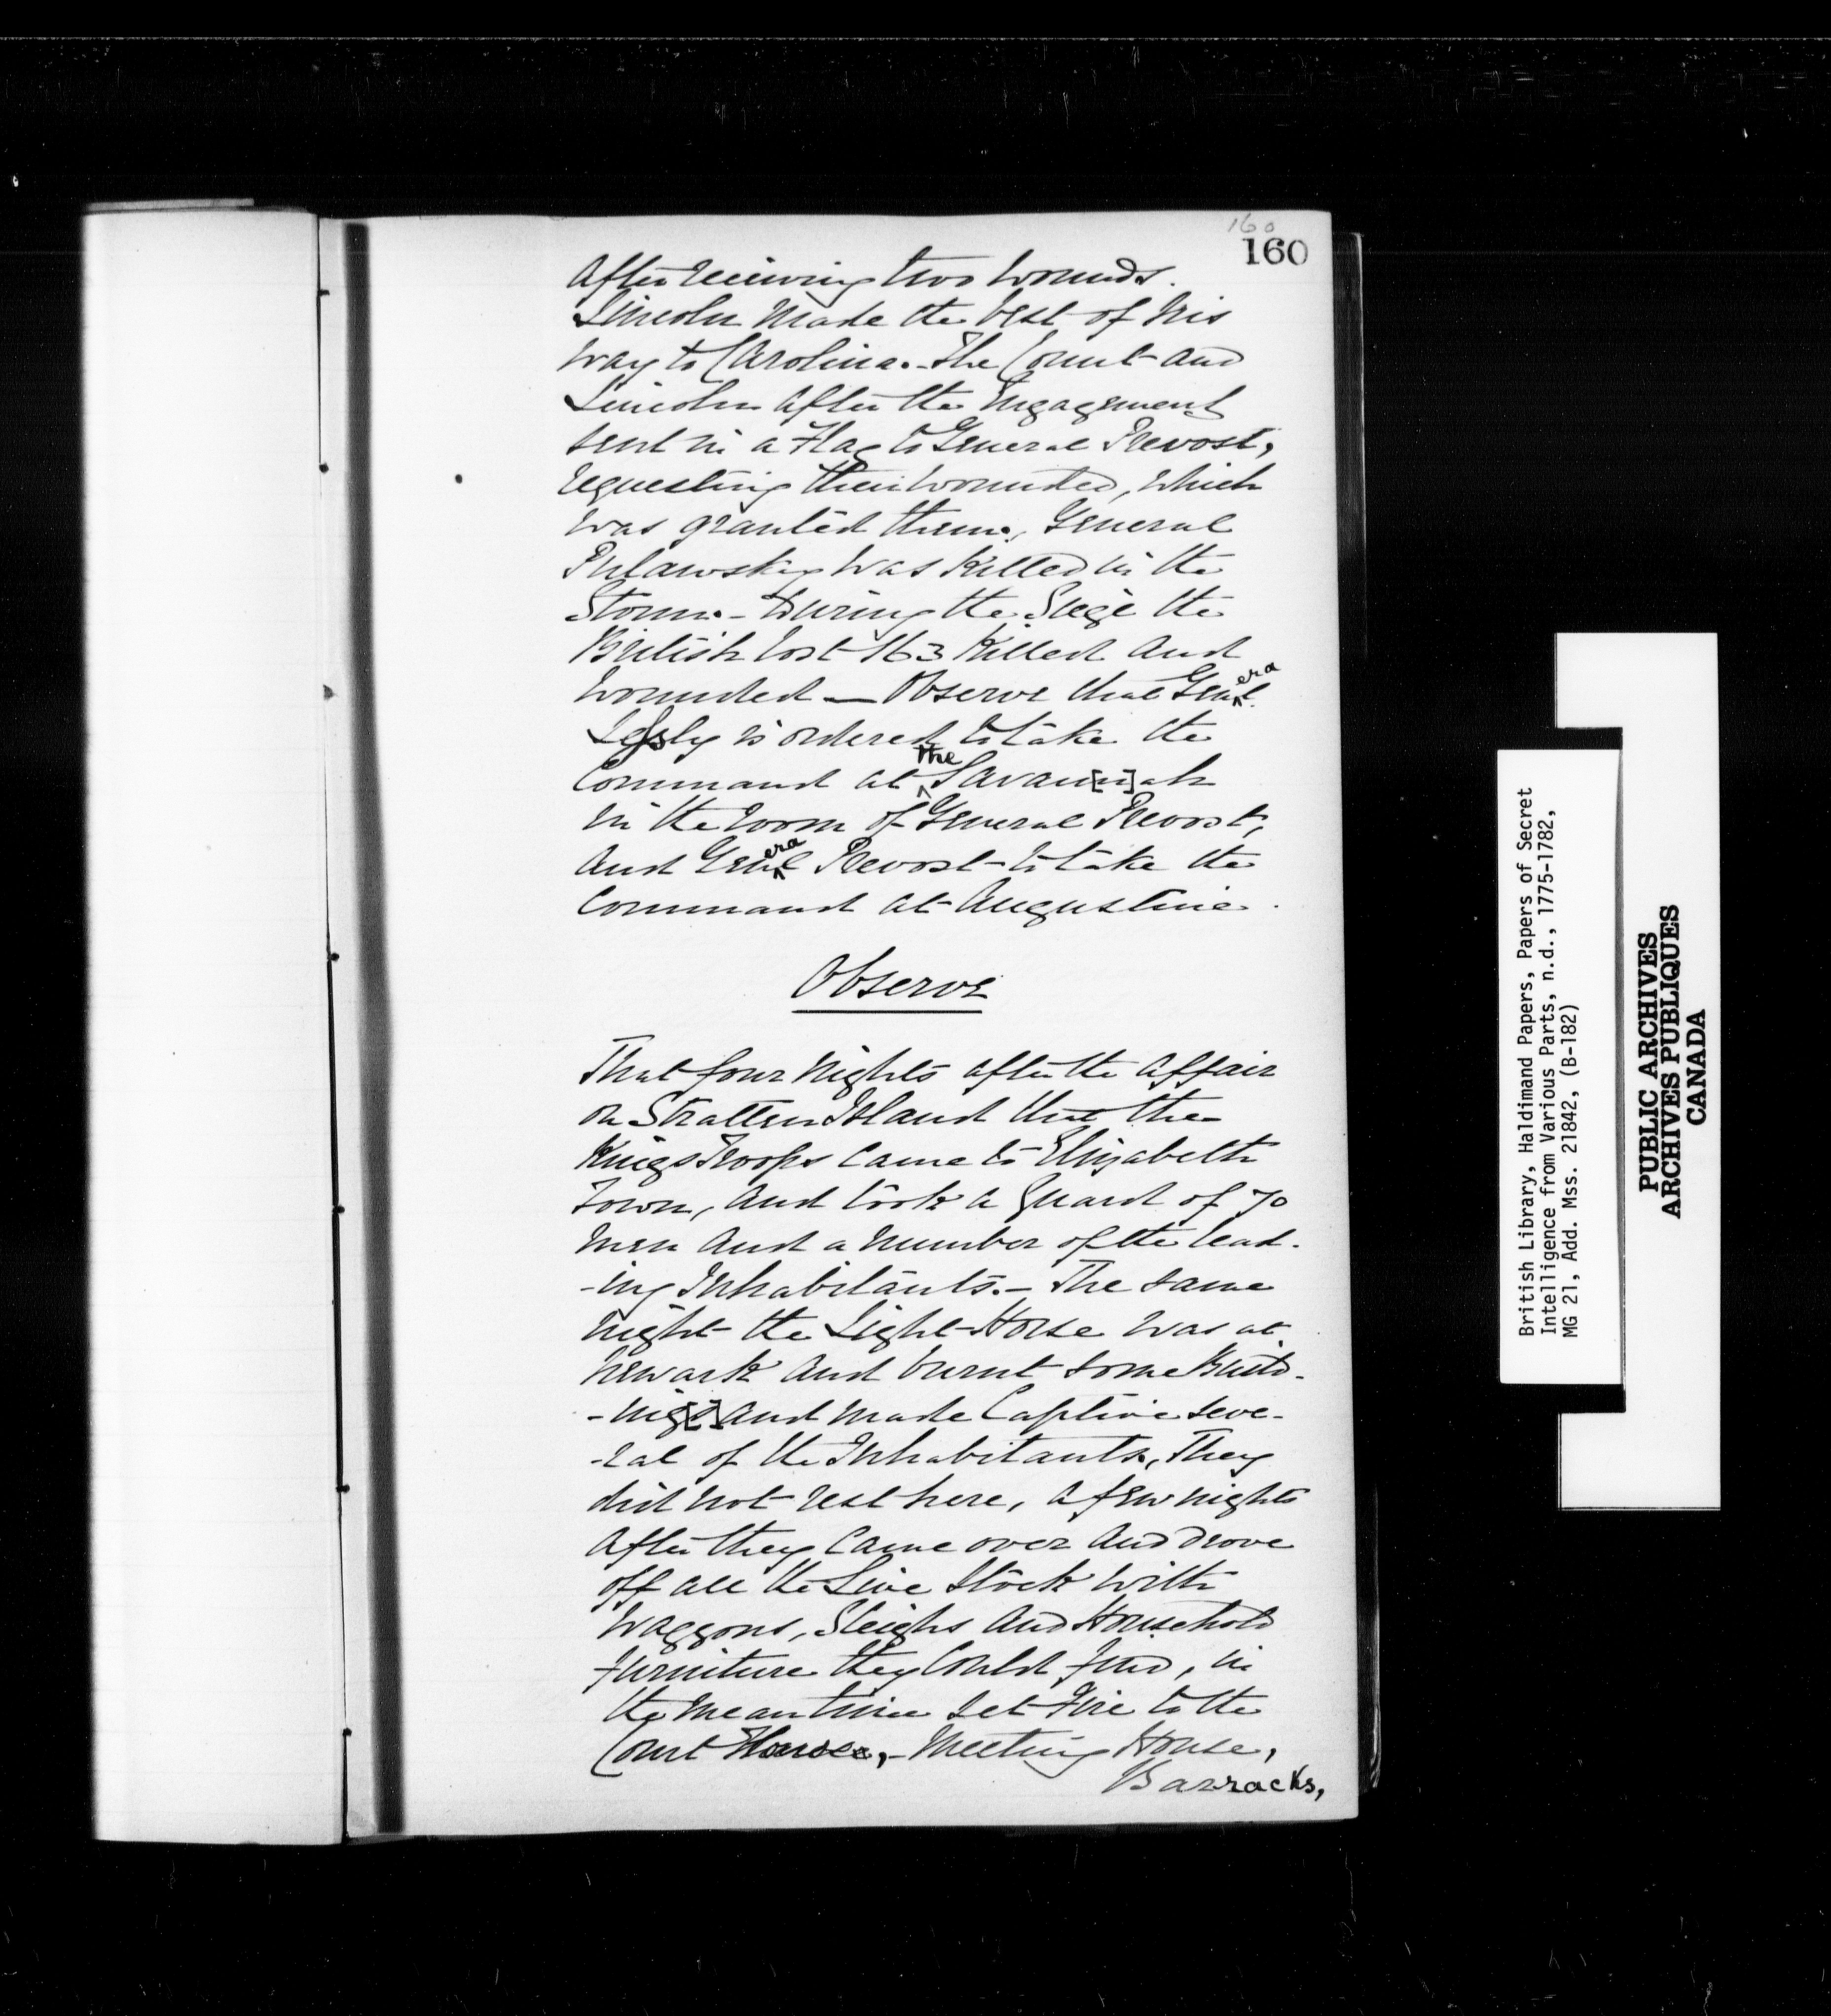 160
160
After receiving two wounds.
Lincoln made the best of his
way to Carolina. - The Count and
Lincoln after the Engagement
sent in a Flag to General Prevost,
requesting their wounded, which
was granted them., General
Pulawskey was killed in the
Storm. - During the Siege the
British lost 163 killed and
wounded — Observe that General
Lessly is ordered to take the
Command at the Savan[n]ah
in the room of General Prevost,
and General Prevost to take the
Command at Augustine.
Observe
That four nights after the affair
on Stratten Island that the
Kings Troops came to Elizabeth
Town, and took a Guard of 70
men and a number of the lead-
-ing Inhabitants. - The same
night the Light Horse was at
Newark and burnt some Build-
-ing[s] and made Captive seve-
-ral of the Inhabitants., They
did not rest here, a few nights
after they came over and drove
off all the Live Stock with
Waggons, Sleighs and Household
furniture they could find, in
the mean time set Fire to the
Court House, - Meeting House,
Barracks,
British Library, Haldimand Papers, Papers of Secret
Intelligence from Various Parts, n.d., 1775-1782,
MG 21, Add. Mss. 21842, (B-182)
PUBLIC ARCHIVES
ARCHIVES PUBLIQUES
CANADA